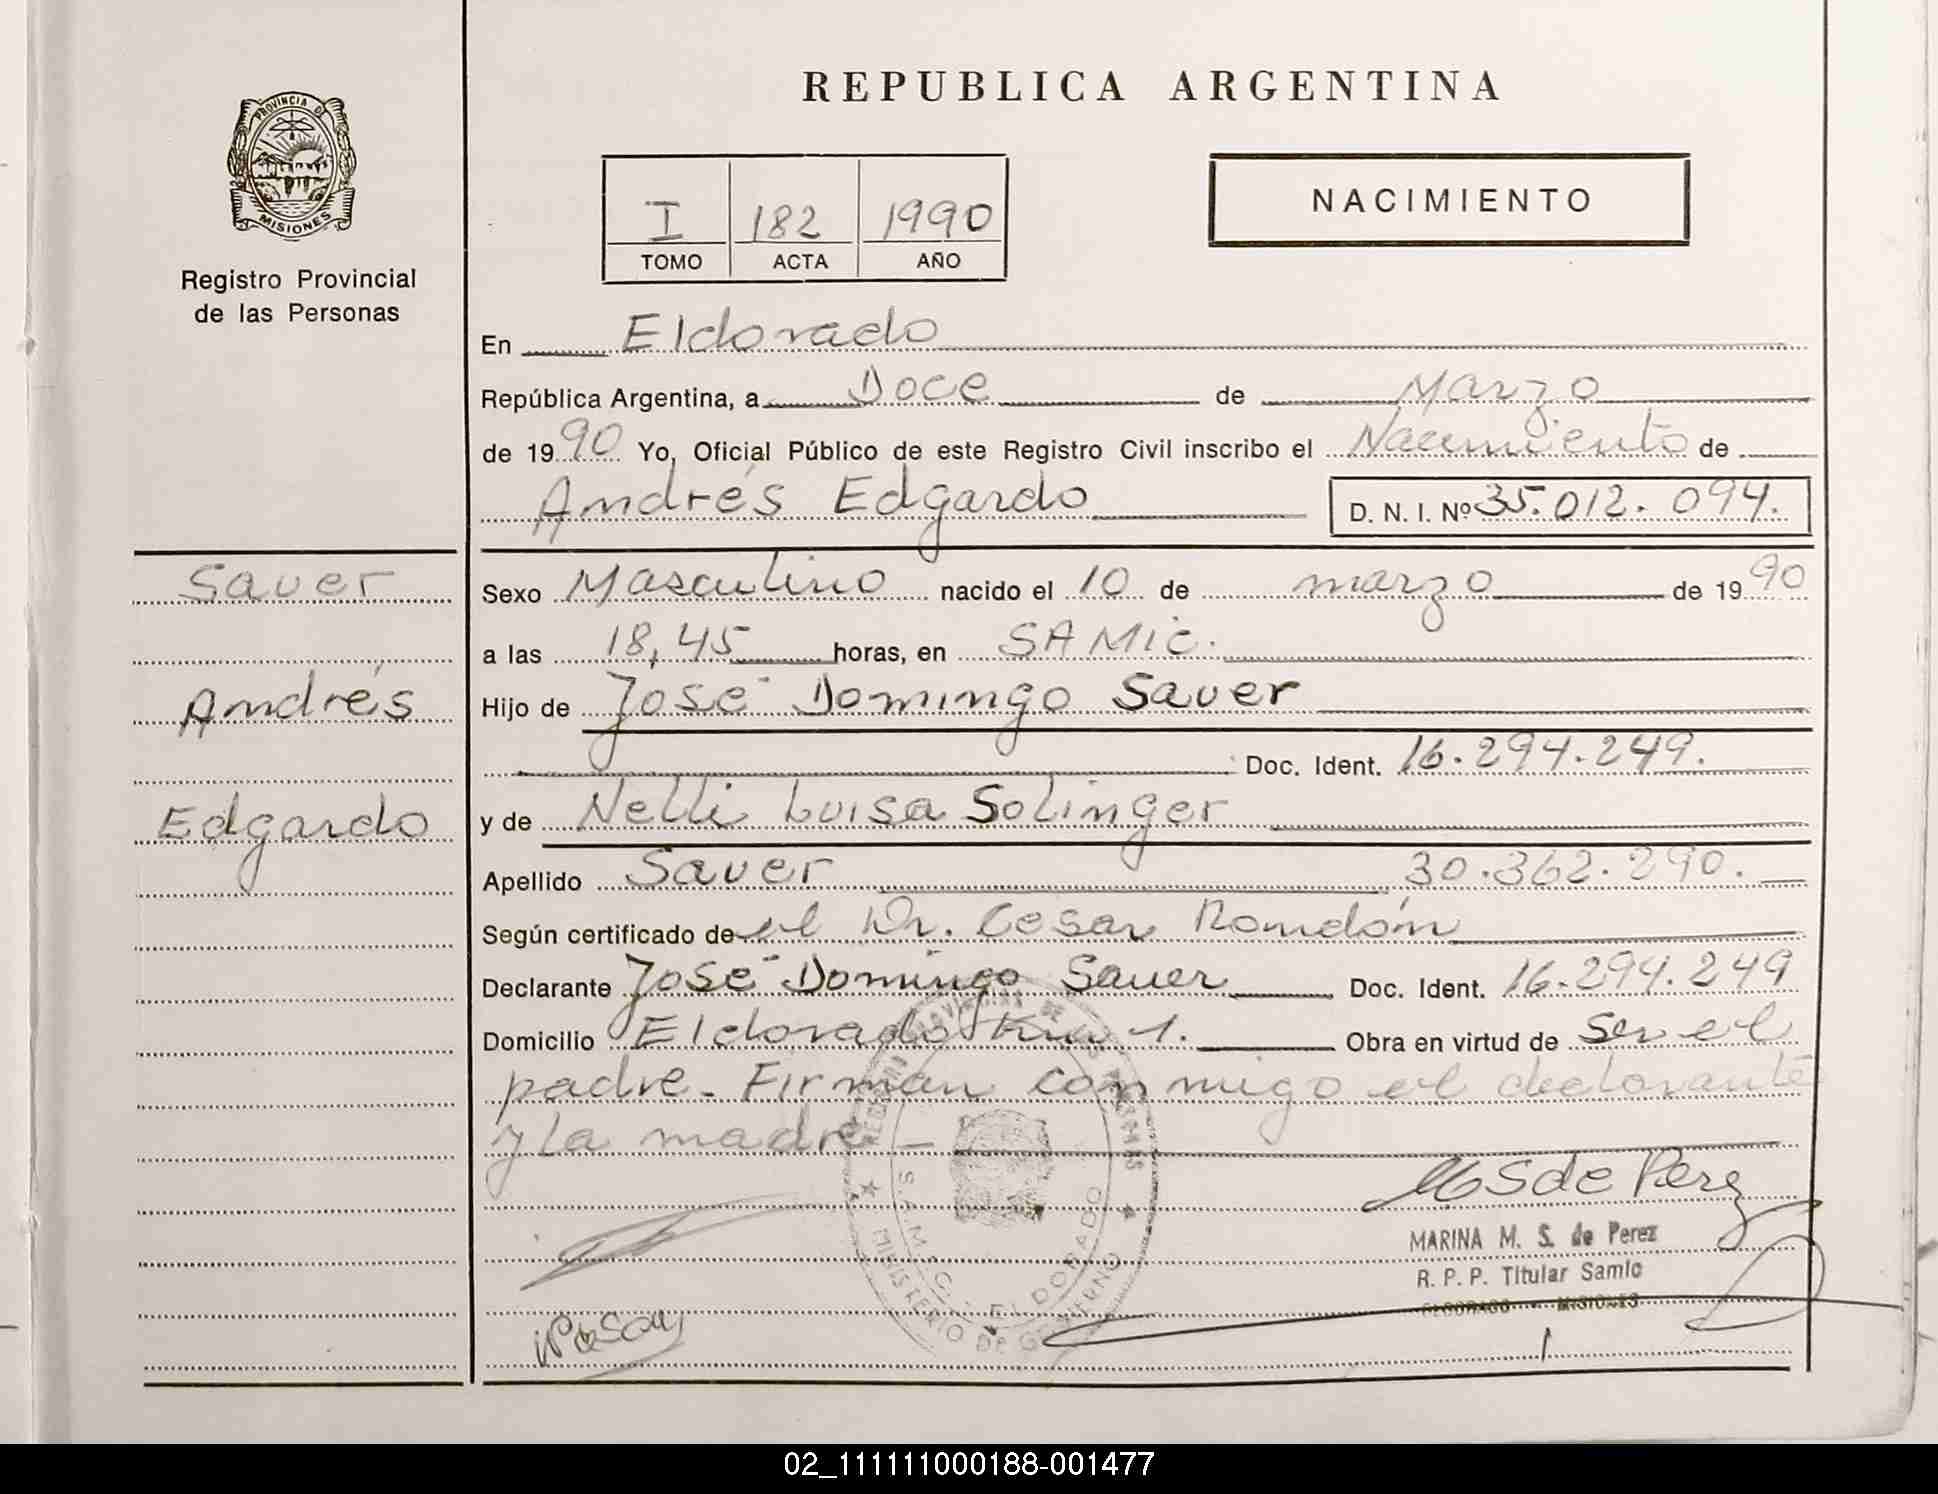 PROVINCIA D
MISIONES
Registro Provincial
de las Personas
REPUBLICA ARGENTINA
I 182 1990
TOMO ACTA AÑO
NACIMIENTO
En Eldorado
República Argentina, a Doce de Marzo
de 1990 Yo, Oficial Público de este Registro Civil inscribo el Nacimiento de
Andrés Edgardo D. N. I. Nº 35.012.094.
Sauer
Sexo Masculino nacido el 10 de marzo de 1990
a las 18,45 horas, en SAMIC.
Andrés
Hijo de José Domingo Sauer
Doc. Ident. 16.294.249.
Edgardo
y de Nelli Luisa Solinger
Apellido Sauer 30.362.290.
Según certificado de el Dr. Cesar
Declarante José Domingo Sauer Doc. Ident. 16.294.249
Domicilio Eldorado Km 1. Obra en virtud de Ser el
padre. Firman conmigo el declarante
y La madre
REGISTRO PROVINCIAL DE LAS PERSONAS
S.A.M.I.C. - ELDORADO
MINISTERIO DE GOBIERNO
MSdePerez
MARINA M. S. de Perez
R. P. P. Titular Samic
ELDORADO - MISIONES
02_111111000188-001477